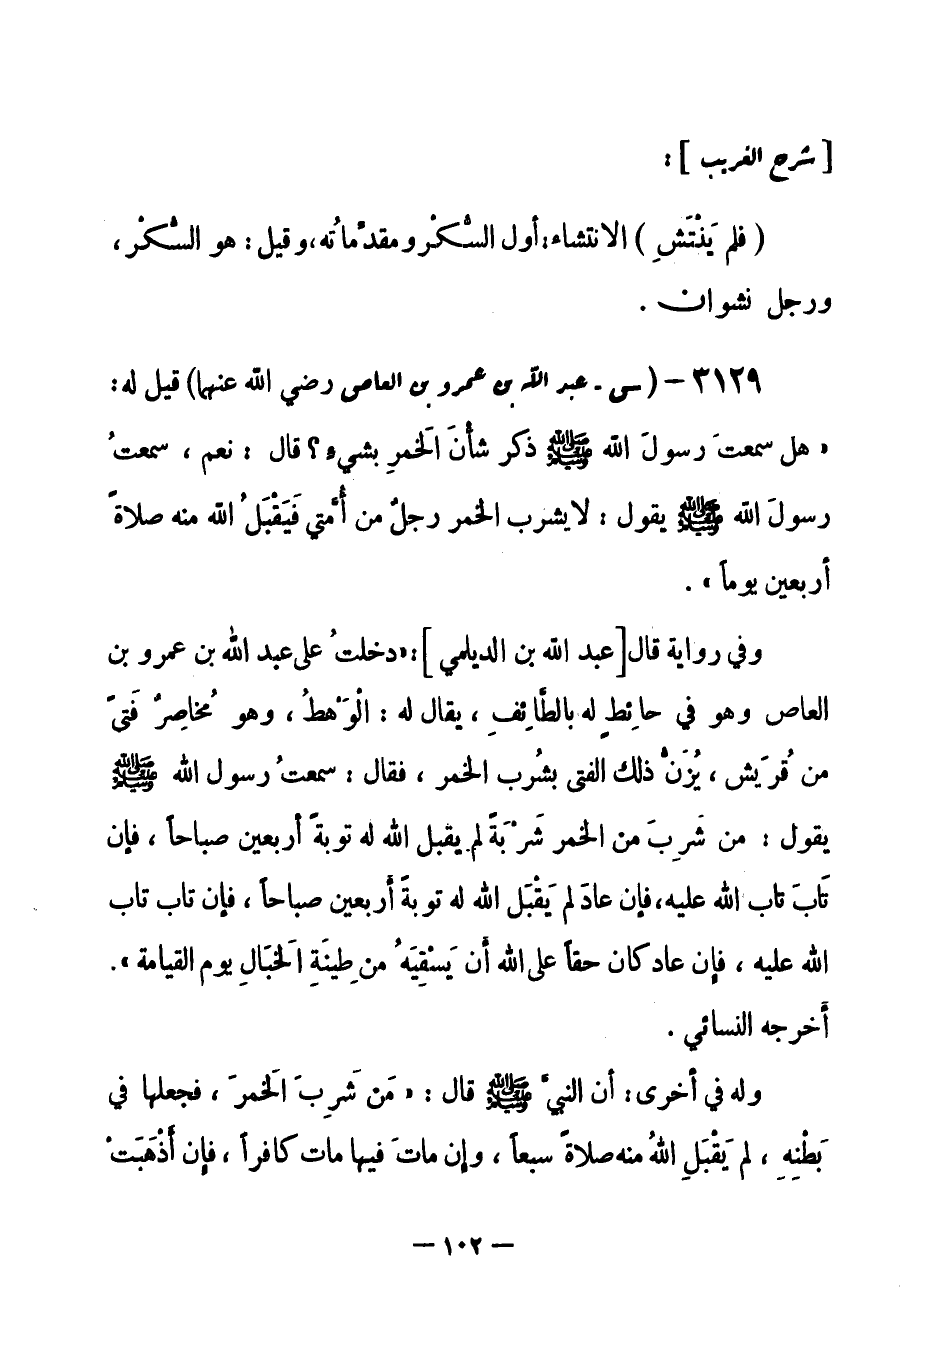 [ شرح الغريب ] :
( فلم يَنْتَشِ ) الانتشاء: أول السُّكْر ومقدِّماتُه، وقيل : هو السُّكْر ،
ورجل نشوان .
٣١٢٩ – ( س - عبد الله بن عمرو بن العاص رضي الله عنهما) قيل له:
« هل سمعتَ رسولَ الله ﷺ ذكر شأنَ الَخمرِ بشيء ؟ قال : نعم ، سمعتُ
رسولَ الله ﷺ يقول : لا يشرب الخمر رجلٌ من أُمَّتي فَيَقْبَلُ الله منه صلاةً
أربعين يوماً » .
وفي رواية قال [عبد الله بن الديلمي] : «دخلتُ على عبد الله بن عمرو بن
العاص وهو في حائِطٍ له بالطَّائِفِ ، يقال له : الْوَهْطُ ، وهو مُخاصِرٌ فَتىً
من قُرَيش ، يُزَنُّ ذلك الفتى بشُرب الخمر ، فقال : سمعتُ رسول الله ﷺ
يقول : من شَرِبَ من الخمر شَرْبَةً لم يقبل الله له توبةً أربعين صباحاً ، فإن
تَابَ تاب الله عليه، فإن عادَ لم يَقْبَل الله له توبةً أربعين صباحاً ، فإن تاب تاب
الله عليه ، فإن عاد كان حقاً على الله أن يَسْقِيَهُ من طِينَةِ الَخبَالِ يوم القيامة ».
أخرجه النسائي .
وله في أخرى : أن النبيَّ ﷺ قال : « مَن شَرِبَ الَخمرَ ، فجعلها في
بَطْنِهِ ، لم يَقْبَلِ اللهُ منه صلاةً سبعاً ، وإن ماتَ فيها مات كافراً ، فإن أَذْهَبَتْ
– ١٠٢ –